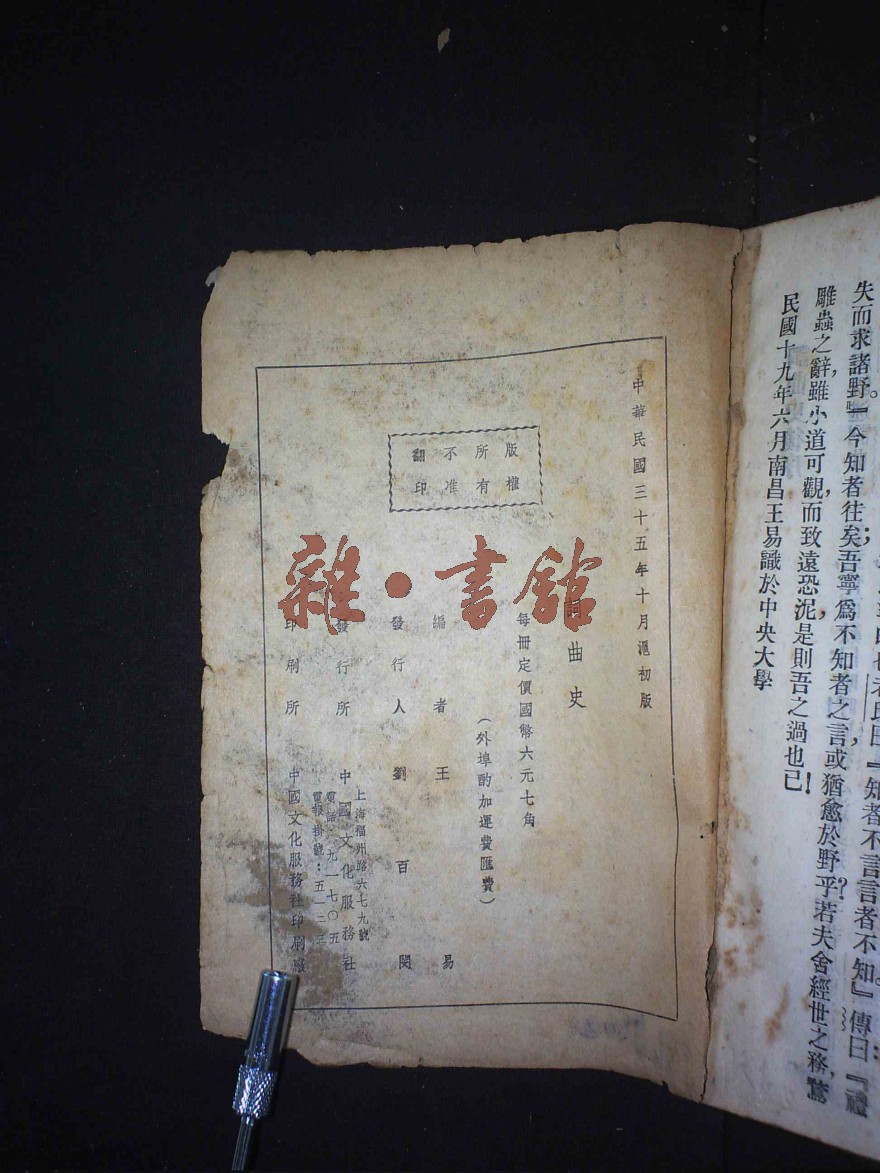 失而求諸野。』今知者往矣；吾寧爲不知者之言，或猶愈於野乎？若夫舍經世之務，驚
雕蟲之辭，雖小道可觀，而致遠恐泥，是則吾之過也已！
民國十九年六月南昌王易識於中央大學
中華民國三十五年十月滬初版
版權
所有
不准
翻印
詞曲史
每冊定價國幣六元七角
（外埠酌加運費匯費）
編者 王易
發行人 劉百閔
發行所 中國文化服務社
上海福州路六七九號
電話：九一七〇五
電報掛號：五一三三
印刷所 中國文化服務社印刷廠
雜·書館